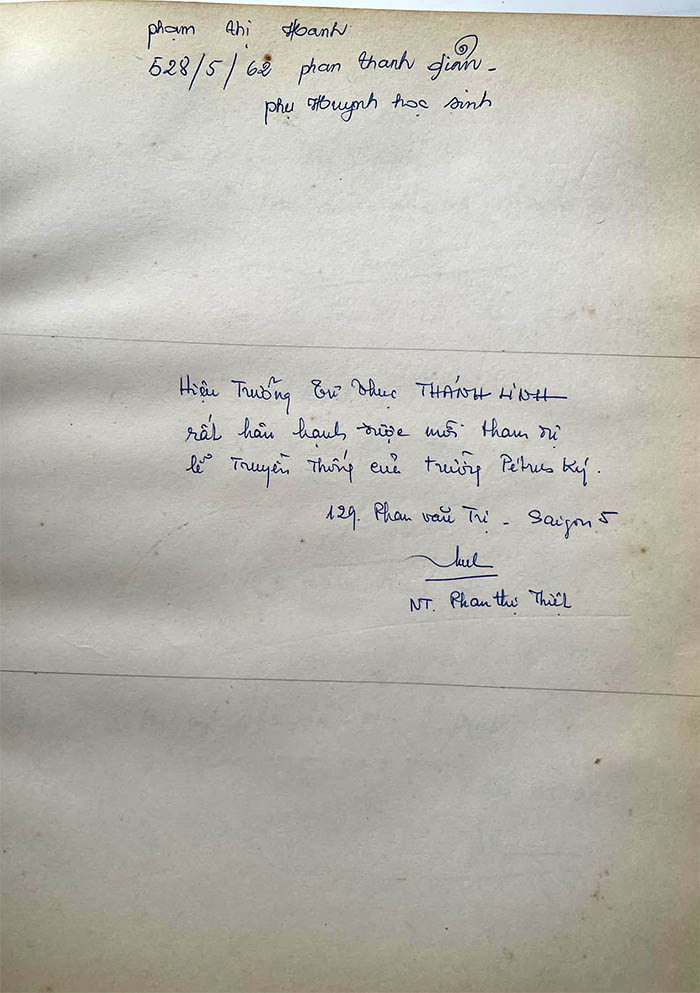 phạm thị Hoanh
528/5/62 phan thanh giản -
phụ Huynh học sinh
Hiệu Trưởng Tư Thục THÁNH LINH
rất hân hạnh được mời tham dự
lễ Truyền Thống của trường Pétrus Ký.
129. Phan văn Trị - Saigon 5
NT. Phan thị Thiệt